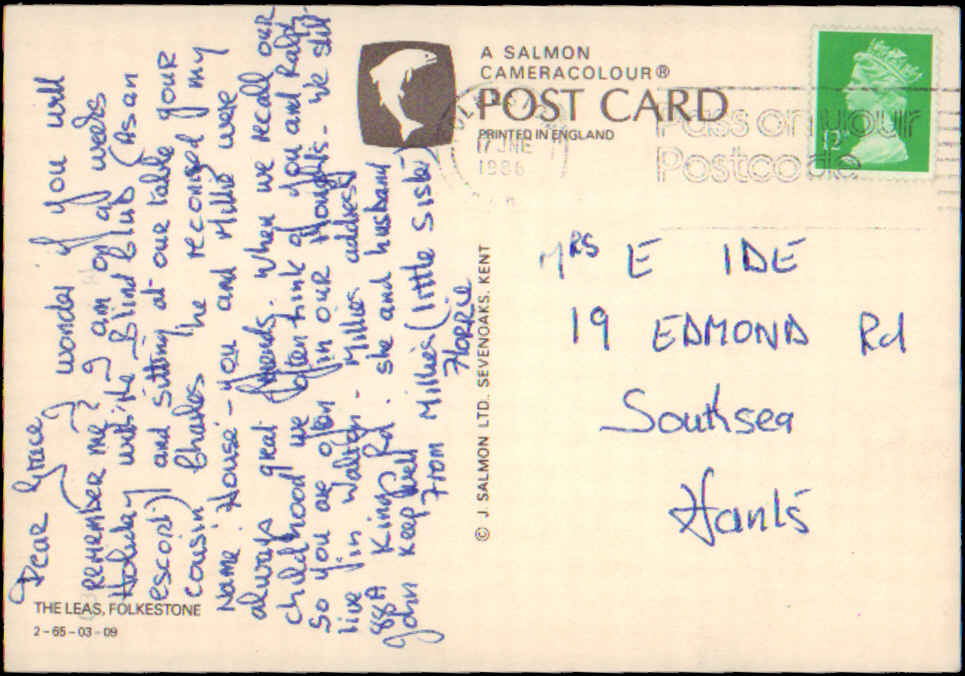 Dear Grace
I wonder if you will
remember me? I am on a weeks
Holiday with the Blind Club (As an
escort) and sitting at our table your
cousin Charles he reconised my
Name. House - you and Millie were
always great friends. When we recall our
childhood we often think of you and Ralph
So you are often in our thoughts - we still
live in Walton - Millies address
88A Kings Rd. she and husband
John keep well
From Millies (little sister)
Florrie
THE LEAS, FOLKESTONE
2-65-03-09
© J. SALMON LTD. SEVENOAKS, KENT
A SALMON
CAMERACOLOUR®
POST CARD
PRINTED IN ENGLAND
17 JNE
1986
Pass on your
Postcode
12P
Mrs E IDE
19 EDMOND Rd
Southsea
Hants